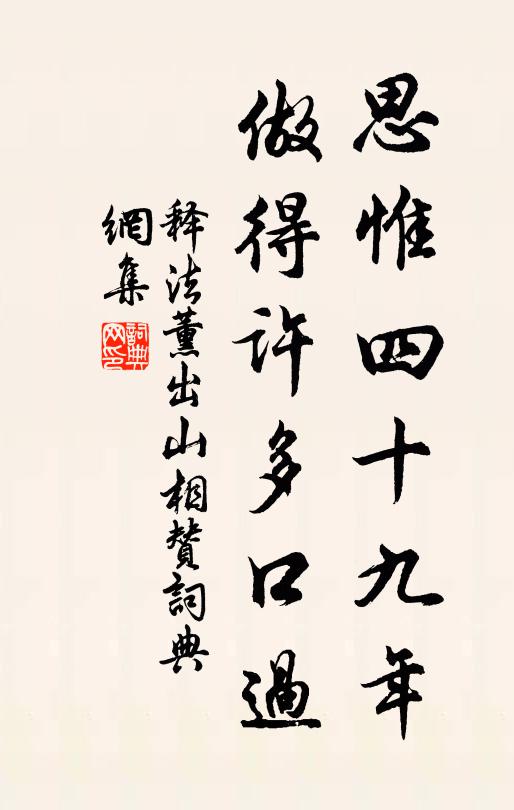 思惟四十九年
做得许多口過
释法薰出山相赞詞典
網集
詞典网印